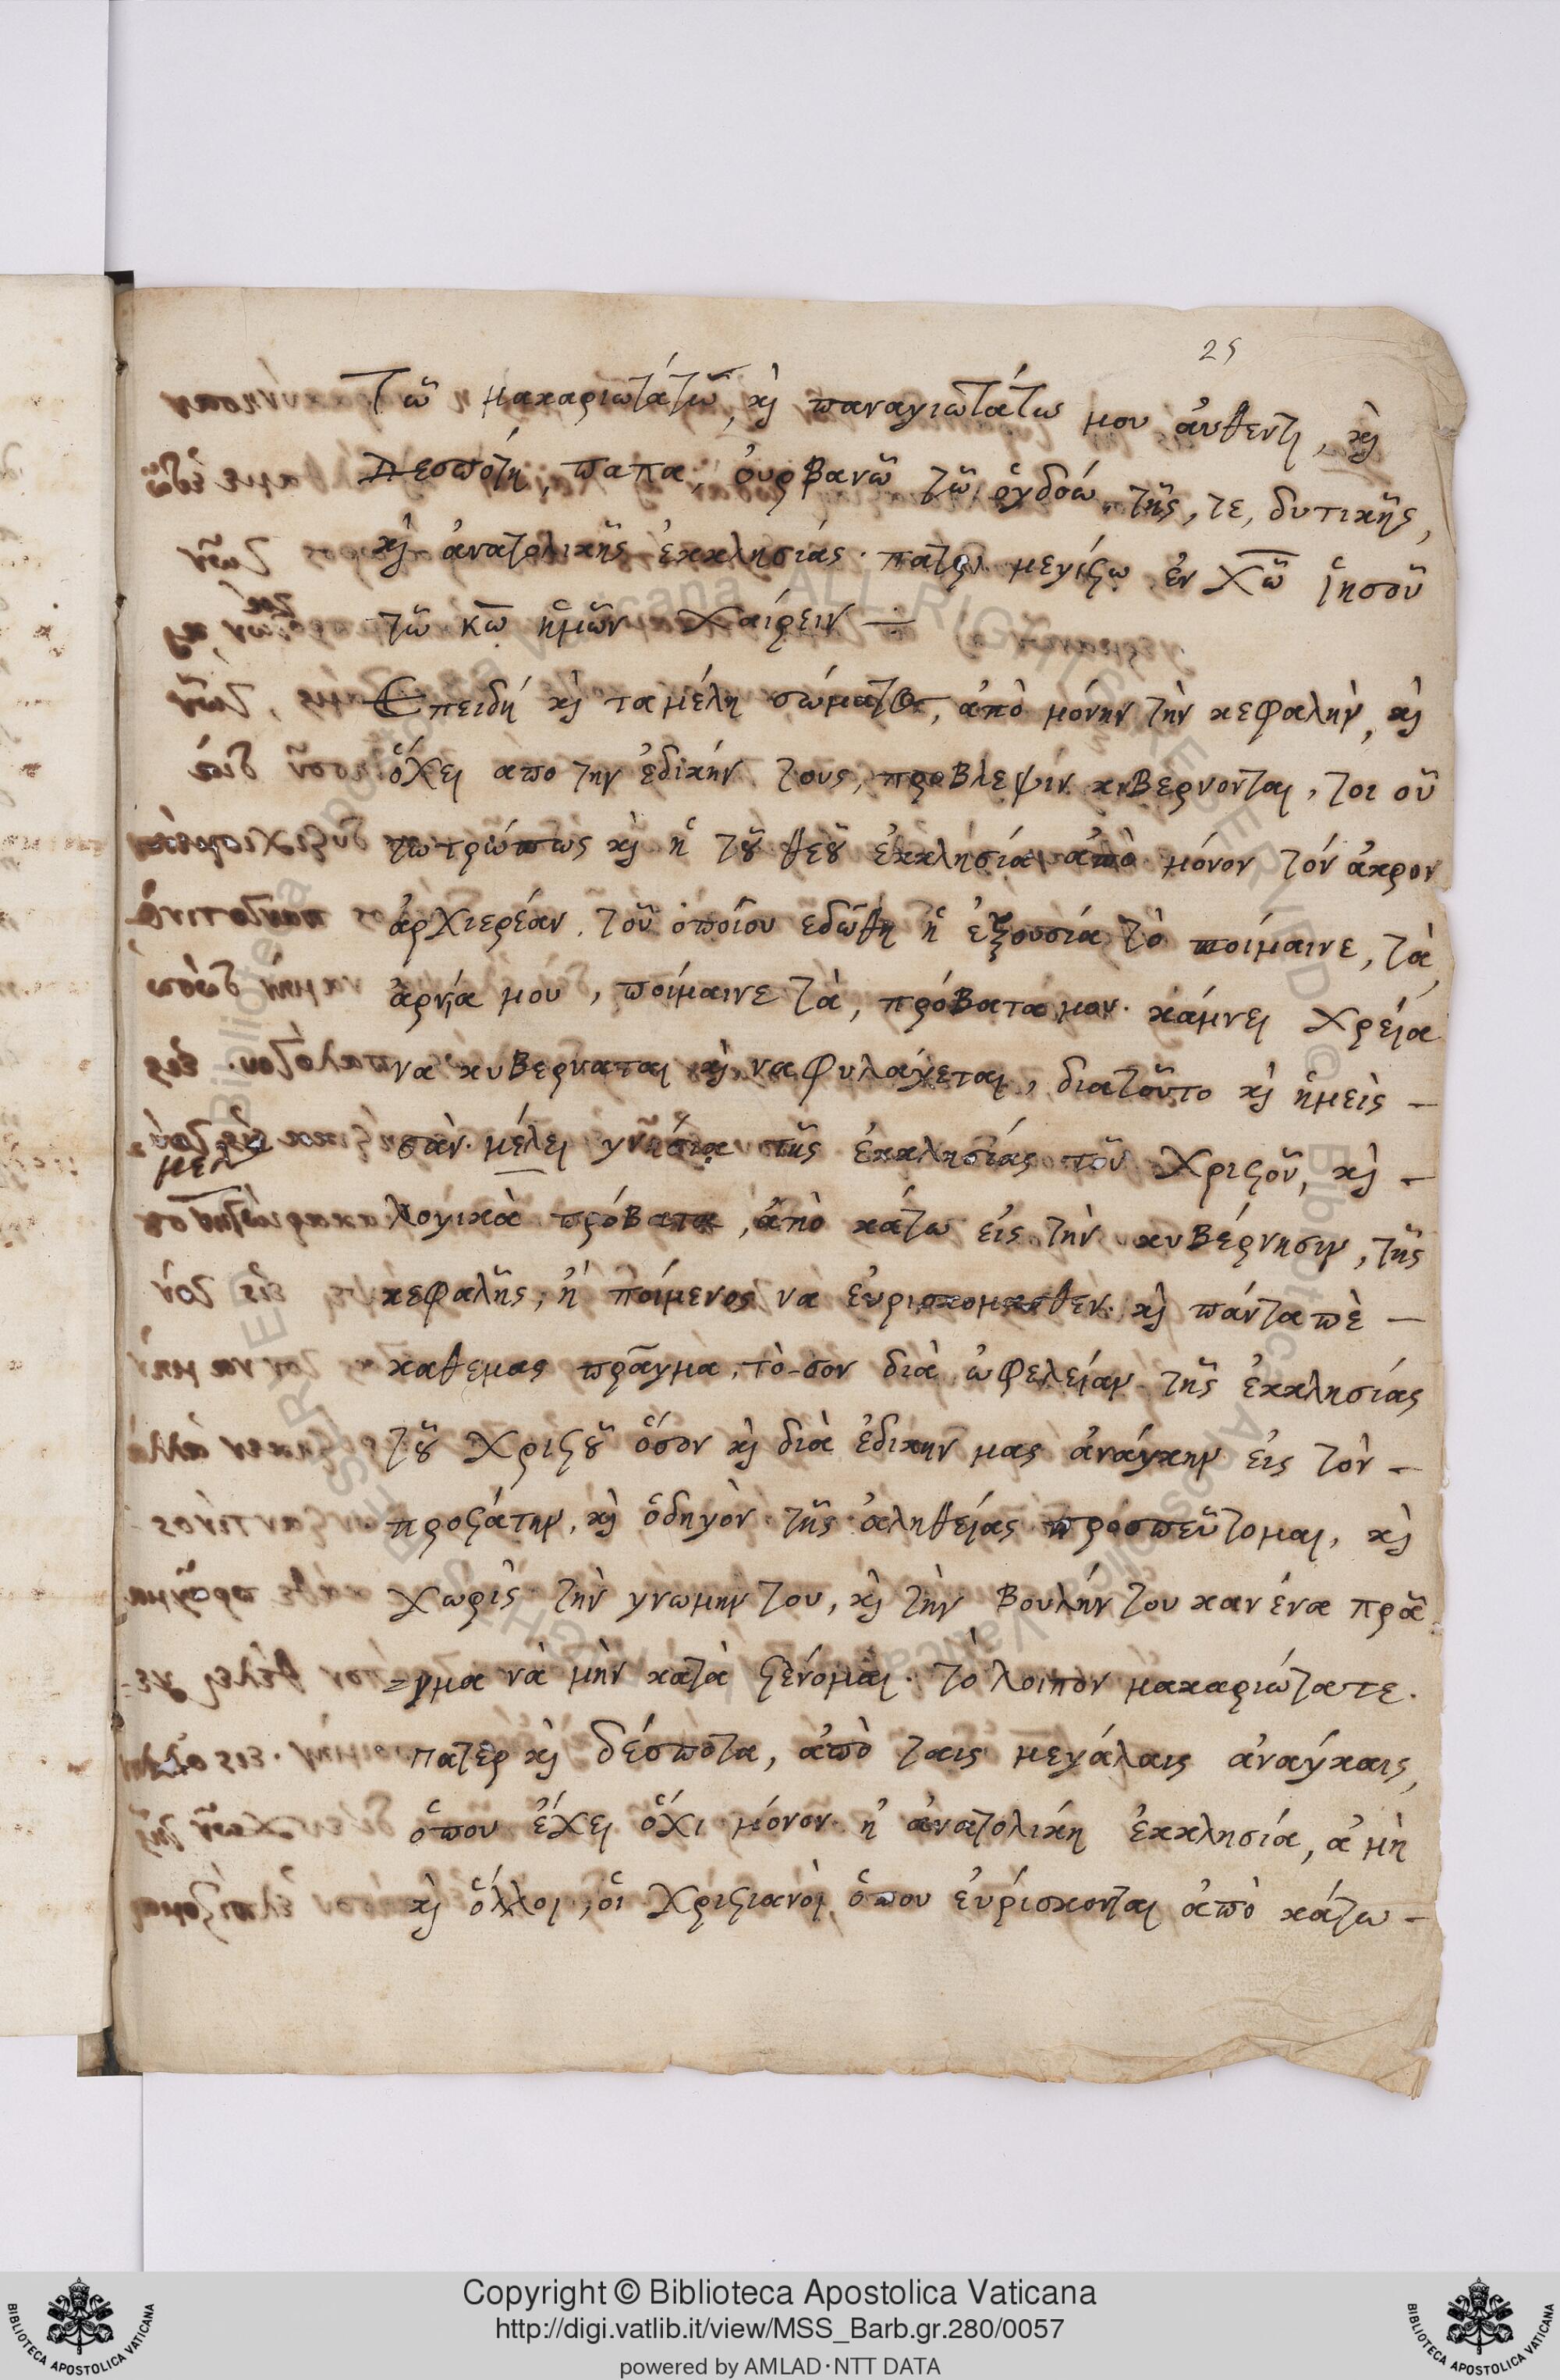 25
Τῶ μακαριωτάτω, κὶ παναγιωτάτω μου ἀυθεντι, κὶ
Δεσπότη, παπα, ὀυρβανῶ τῶ ὀγδοώ τῆς, τε, δυτικῆς,
κὶ ἀνατολικῆς ἐκκλησιάς. πατρι μεγίστω ἐν Χῶ ἰησοῦ
τῶ κω ἡμῶν Χαίρειν
Ἐπειδή κὶ τα μέλη σώματος, ἀπὸ μόνην τὴν κεφαλὴν, κὶ
ὄχει απο την ἐδικήν τους, προβλεψιν κιβερνονται, τοι οῦ
τωτρώπως κὶ ἡ τοῦ θεοῦ ἐκκλησία ἀπὸ μόνον τόν ἀκρον
ἀρχιερέαν. τοῦ ὁποίου εδώθη ἡ ἐξουσία τὸ ποίμαινε, τὰ
ἀρνία μου, ποίμαινε τὰ, πρόβατα μου. κάμνει χρεία
να κυβερναται κὶ να φυλάγεται, διατοῦτο κὶ ἡμεὶς -
σὰν. μέλει γνησια τῆς ἐκκλησίας τοῦ Χριστοῦ, κὶ -
μελ
λογικὰ πρόβατα, ἀπὸ κάτω εἰς τὴν κυβέρνησιν, τῆς
κεφαλῆς, ἠ ποίμενος να ἐυρισκομασθεν. κὶ πάντα πὲ -
καθεμας πρᾶγμα, τὸ-σον διὰ ὠφελείαν τῆς ἐκκλησίας
τοῦ Χριστοῦ ὅσον κὶ διὰ ἐδικην μας ἀνάγκην εἰς τὸν -
προστάτην, κὶ ὁδηγὸν τῆς ἀληθείας προσπεῦτομαι, κὶ
χωρὶς τὴν γνωμην του, κὶ τὴν βουλήν του κανένα πρᾶ
=γμα νὰ μὴν κατὰ στένομαι. τὸ λοιπὸν μακαριώτατε.
πατερ κὶ δέσποτα, ἀπὸ ταις μεγάλαις ἀνάγκαις,
ὁπου ἔχει ὄχι μόνον ἡ ἀνατολικη ἐκκλησία, ἀ μὴ
κὶ ὅλλοι, οἱ Χριστιανοὶ ὁπου ἐυρίσκονται ἀπὸ κάτω -
Copyright © Biblioteca Apostolica Vaticana
http://digi.vatlib.it/view/MSS_Barb.gr.280/0057
powered by AMLAD·NTT DATA